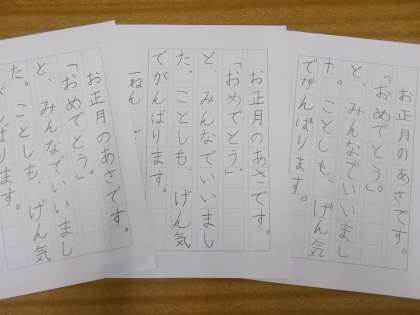 お正月のあさです。
「おめでとう。」
と、みんなでいいまし
た。ことしも、げん気
でがんばります。
お正月のあさです。
「おめでとう。」
と、みんなでいいまし
た。ことしも、げん気
でがんばります。
一ねん
お正月のあさです。
「おめでとう。」
と、みんなでいいまし
た。ことしも、げん気
がんばります。